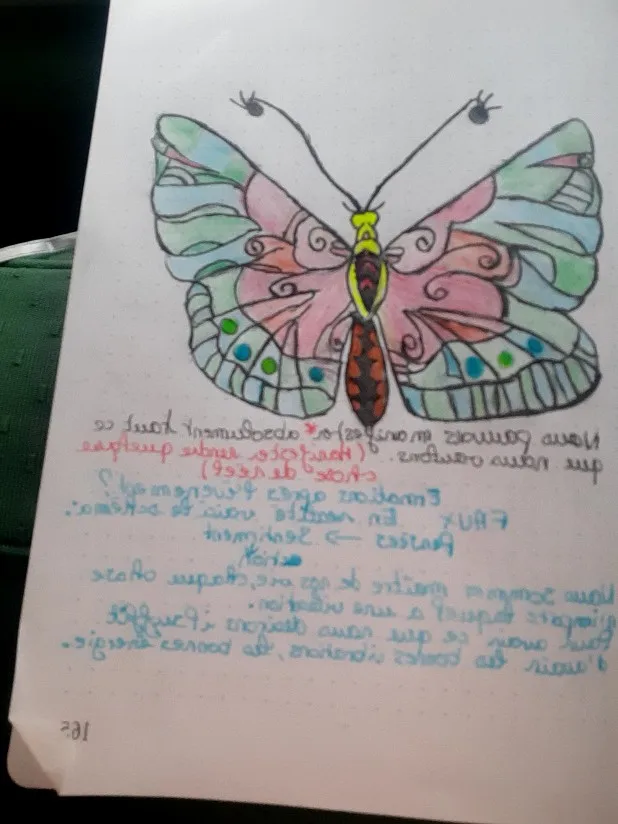 Nous pouvons manifester* absolument tout ce
que nous voulons. (Manifester, rendre quelque
chose de réel)
Emotions après l'évenement?
FAUX En realité voici le schéma:
Pensées -> Sentiment
action
Nous sommes maître de nos vie, chaque chose
n'importe laquel a une vibration.
Pour avoir ce que nous désirons il suffit
d'avoir les bonnes vibrations, les bonnes énergie.
165